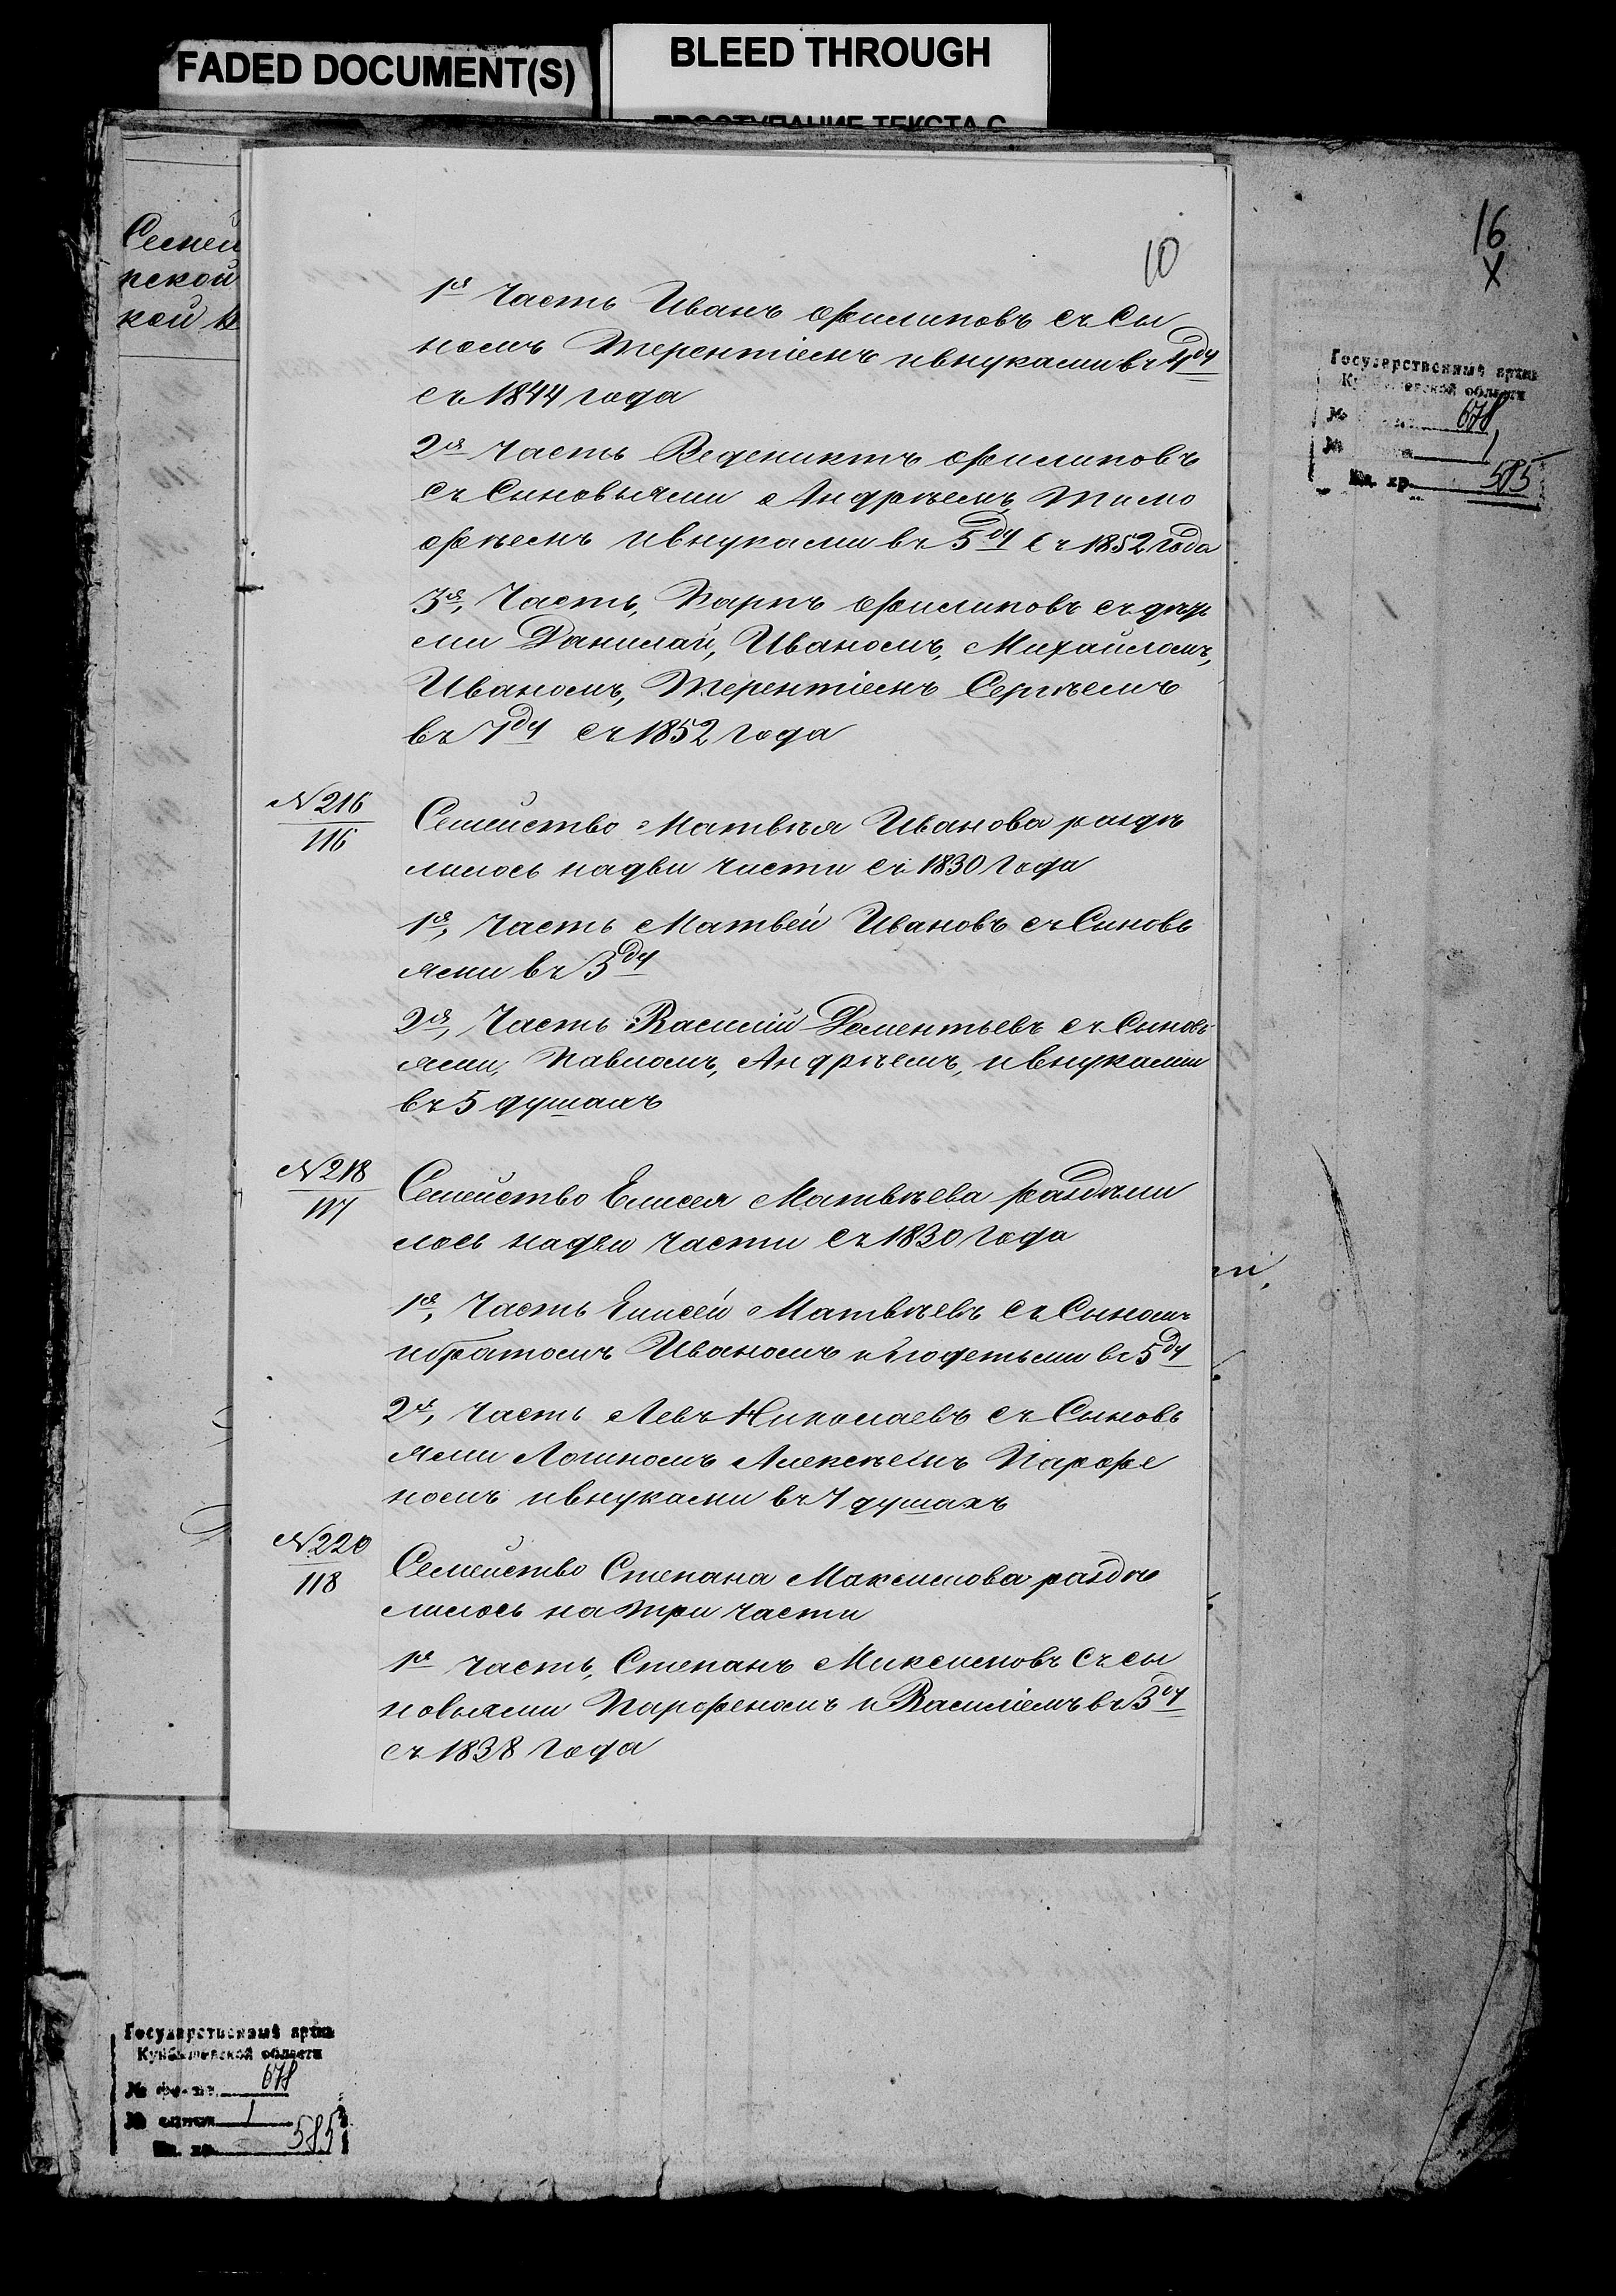 FADED DOCUMENT(S)
BLEED THROUGH
ПРОСТУПАНИЕ ТЕКСТА С
16
X
10
Семей
пской
кой
1я Часть Иванъ Филиповъ съ Сы
номъ Терентіемъ ивнуками въ 4ду
съ 1844 года
2я Часть Веденихтъ Филиповъ
съ Сыновьями Андрѣемъ Тимо
фѣемъ ивнуками въ 5ду съ 1852 года
3я, Часть, Карпъ Филиповъ съ дѣть
ми Данилай, Иваномъ, Михайломъ,
Иваномъ, Терентіемъ Сергѣемъ
въ 7ду съ 1852 года
№ 216
116
Семейство Матвѣя Иванова раздѣ
лилось надви части съ 1830 года
1я, Часть Матвей Ивановъ съ Сыновь
ями въ 3ду
2я, Часть Василій Дементьевъ съ Сыновь
ями, Павломъ, Андрѣемъ, ивнуками
въ 5 душахъ
№ 218
117
Семейство Елисея Матвѣева раздѣли
лось надви части съ 1830 года
1я, Часть Елисей Матвѣевъ съ Сыномъ
ибратомъ Иваномъ иЕгодетьми въ 5ду
2я, Часть Левъ Николаевъ съ Сыновь
ями Логиномъ Алексѣемъ Парфе
номъ ивнуками въ 7 душахъ
№ 220
118
Семейство Степана Максимова раздѣ
лилось на три части
1я Часть, Степанъ Максимовъ съ сы
новьями Парфеномъ и Василіемъ въ 3ду
съ 1838 года
Государственный архив
Куйбышевской области
№ 678
№ 1
Ед. хр. 585
Государственный архив
Куйбышевской области
№ фонда 678
№ описи 1
Ед. хр. 585